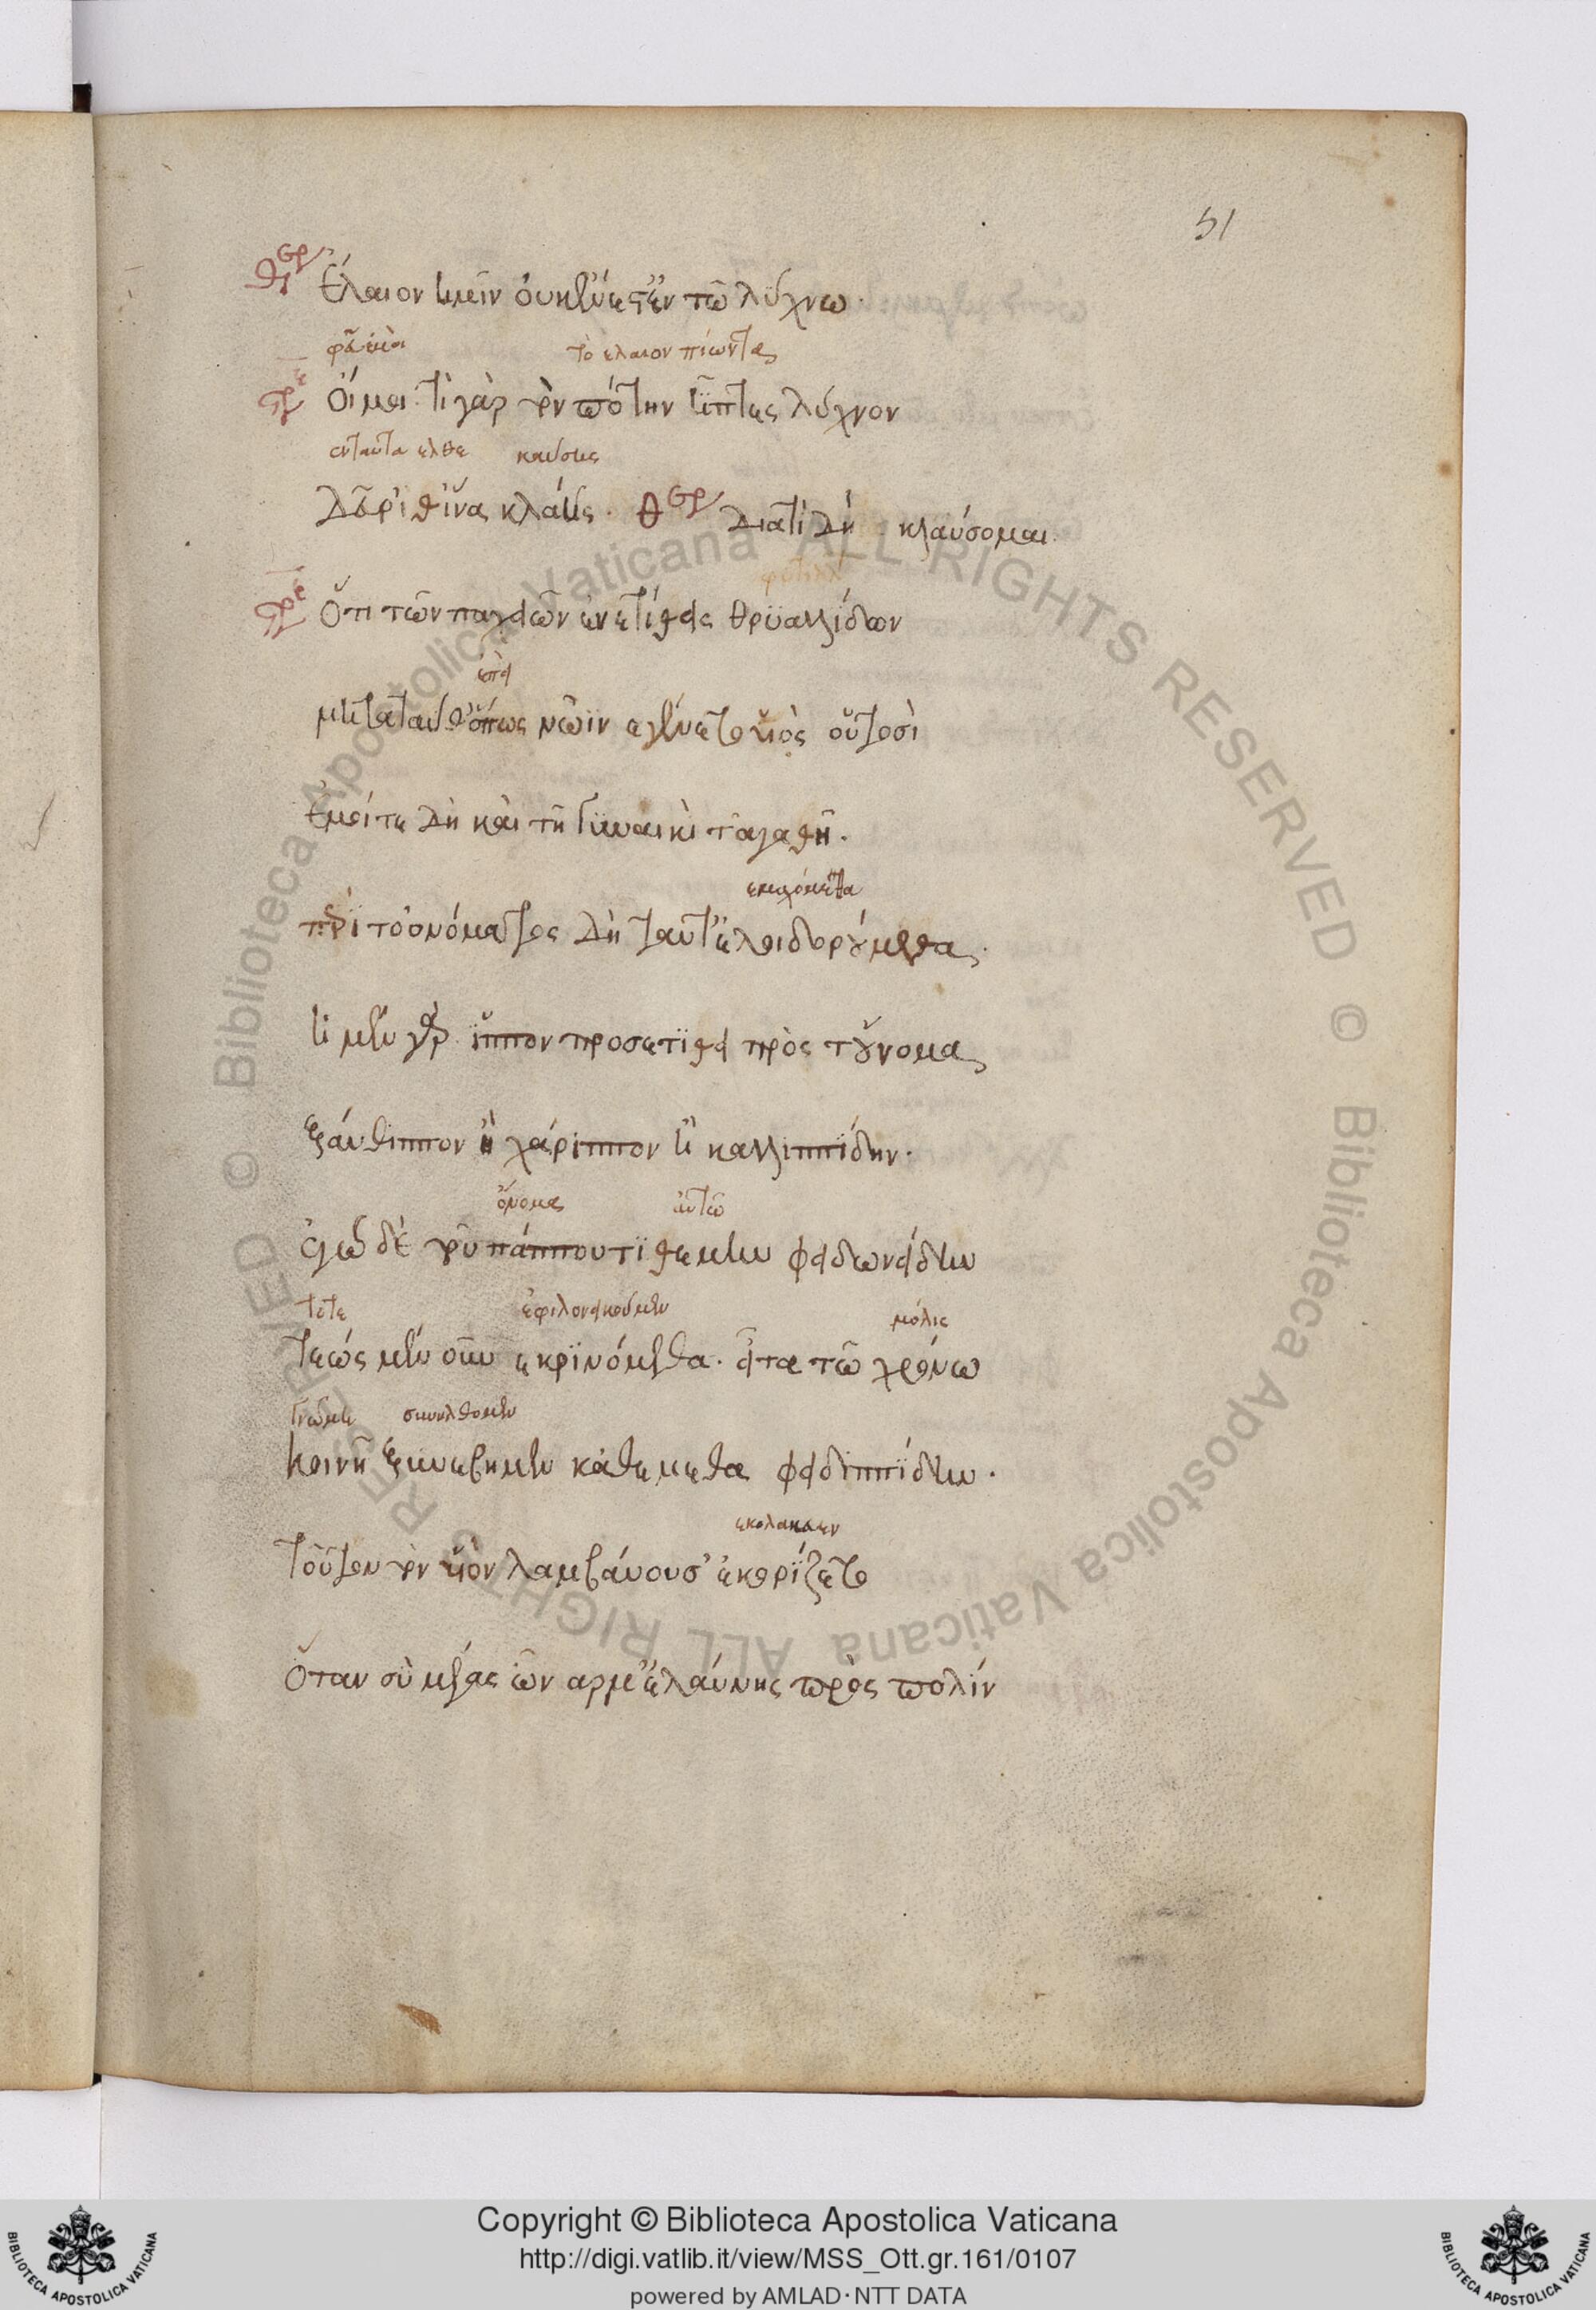 51
θερ Ἔλαιον ἡμῖν οὐκ ἔνεστ' ἐν τῷ λύχνῳ.
φεῦ ἐμοί τὸ ἔλαιον πίνοντα
στρε Οἴμοι. τί γὰρ τὸν πότην ἧπτες λύχνον
ἐνταῦθα ἐλθέ καύσεις
Δεῦρ' ἴθ' ἵνα κλάῃς. θερ Διατί δὴ κλαύσομαι.
φυτιλλ
στρε Ὅτι τῶν παχειῶν ἐνετίθεις θρυαλλίδων
ἐπεὶ
μετὰ ταῦθ' ὅπως νῶϊν ἐγένετο υἱὸς οὑτοσὶ
Ἐμοί τε δὴ καὶ τῇ γυναικὶ τἀγαθῇ.
ἐμαχόμεθα
περὶ τοὐνόματος δὴ ταῦτ' ἐλοιδορούμεθα,
ἡ μὲν γὰρ ἵππον προσετίθει πρὸς τοὔνομα,
Ξάνθιππον ἢ χάριππον ἢ καλλιππίδην.
ὄνομα αὐτῷ
ἐγὼ δὲ τοῦ πάππου τιθέμην φειδωνίδην
τότε ἐφιλονεικοῦμεν μόλις
Τέως μὲν οὖν ἐκρινόμεθα. εἶτα τῷ χρόνῳ
γνώμῃ συνήλθομεν
κοινῇ ξυνέβημεν κἀθέμεθα φειδιππίδην.
ἐκολάκευεν
Τοῦτον τὸν υἱὸν λαμβάνουσ' ἐκορίζετο
Ὅταν σὺ μέγας ὢν ἅρμ' ἐλαύνῃς πρὸς πόλιν
Copyright © Biblioteca Apostolica Vaticana
http://digi.vatlib.it/view/MSS_Ott.gr.161/0107
powered by AMLAD·NTT DATA
BIBLIOTECA APOSTOLICA VATICANA
BIBLIOTECA APOSTOLICA VATICANA
© Biblioteca Apostolica Vaticana ALL RIGHTS RESERVED © Biblioteca Apostolica Vaticana ALL RIGHTS RESERVED